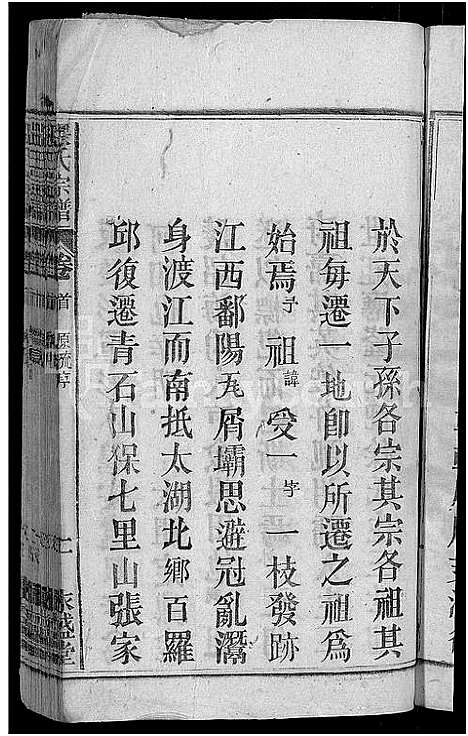 於天下子孫各宗其宗各祖其
祖每遷一地即以所遷之祖為
始焉于祖諱受一字一枝發跡
江西鄱陽瓦屑壩思避冠亂潛
身渡江而南抵太湖北鄉百羅
邱復遷青石山保七里山張家
氏宗譜
卷首 源流序
永盛堂